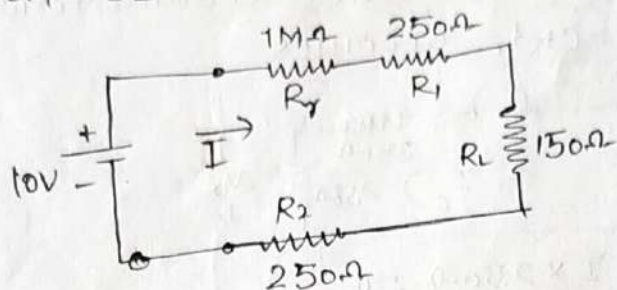 1MΩ 250Ω
Rγ R1
+
10V
-
I
RL 150Ω
R2
250Ω